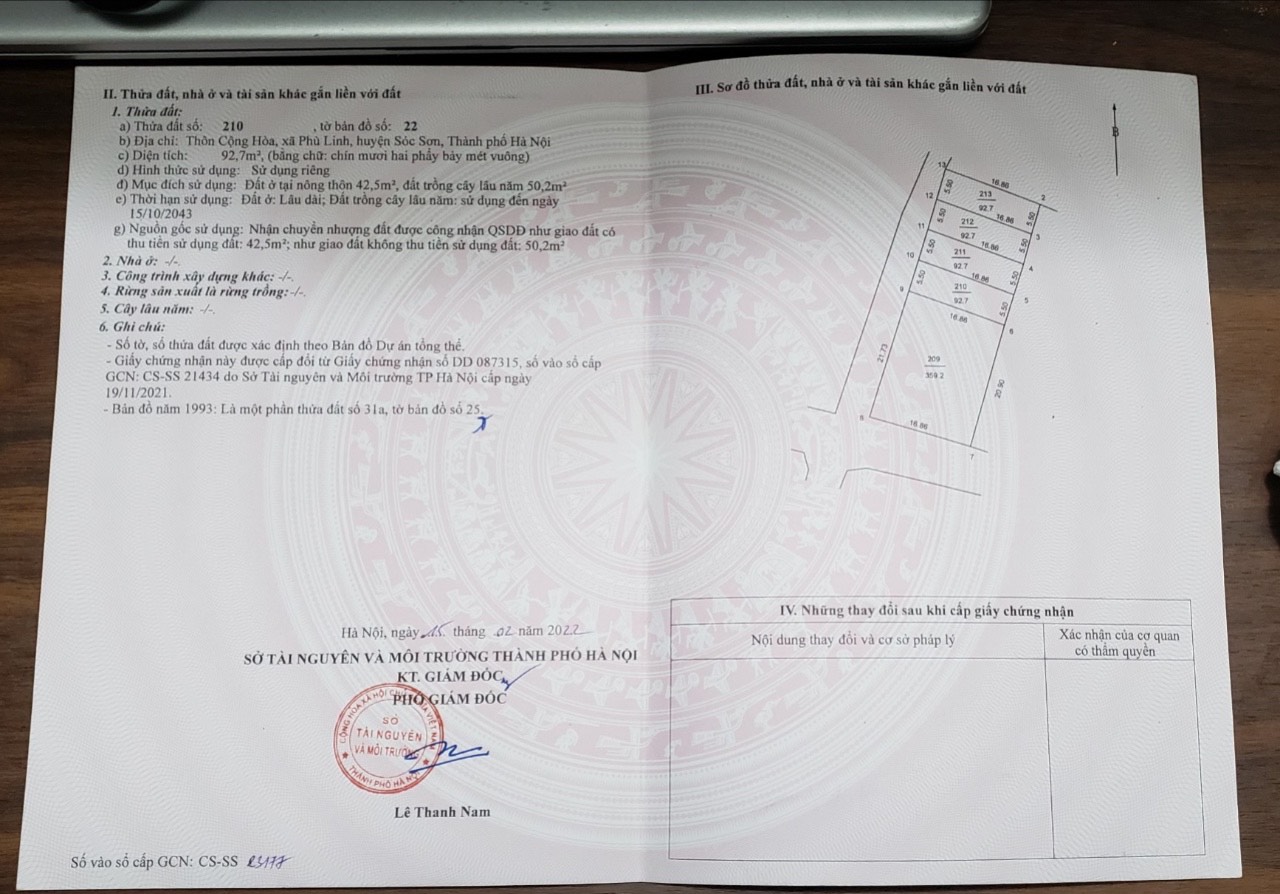 II. Thửa đất, nhà ở và tài sản khác gắn liền với đất
1. Thửa đất:
a) Thửa đất số: 210 , tờ bản đồ số: 22
b) Địa chỉ: Thôn Cộng Hòa, xã Phù Linh, huyện Sóc Sơn, Thành phố Hà Nội
c) Diện tích: 92,7m², (bằng chữ: chín mươi hai phẩy bảy mét vuông)
d) Hình thức sử dụng: Sử dụng riêng
đ) Mục đích sử dụng: Đất ở tại nông thôn 42,5m², đất trồng cây lâu năm 50,2m²
e) Thời hạn sử dụng: Đất ở: Lâu dài; Đất trồng cây lâu năm: sử dụng đến ngày
15/10/2043
g) Nguồn gốc sử dụng: Nhận chuyển nhượng đất được công nhận QSDĐ như giao đất có
thu tiền sử dụng đất: 42,5m²; như giao đất không thu tiền sử dụng đất: 50,2m²
2. Nhà ở: -/-.
3. Công trình xây dựng khác: -/-.
4. Rừng sản xuất là rừng trồng:-/-.
5. Cây lâu năm: -/-.
6. Ghi chú:
- Số tờ, số thửa đất được xác định theo Bản đồ Dự án tổng thể.
- Giấy chứng nhận này được cấp đổi từ Giấy chứng nhận số DD 087315, số vào sổ cấp
GCN: CS-SS 21434 do Sở Tài nguyên và Môi trường TP Hà Nội cấp ngày
19/11/2021.
- Bản đồ năm 1993: Là một phần thửa đất số 31a, tờ bản đồ số 25.
Hà Nội, ngày 15 tháng 02 năm 2022
SỞ TÀI NGUYÊN VÀ MÔI TRƯỜNG THÀNH PHỐ HÀ NỘI
KT. GIÁM ĐỐC
PHÓ GIÁM ĐỐC
CỘNG HÒA XÃ HỘI CHỦ NGHĨA VIỆT NAM
SỞ
TÀI NGUYÊN
VÀ MÔI TRƯỜNG
THÀNH PHỐ HÀ NỘI
Lê Thanh Nam
Số vào sổ cấp GCN: CS-SS 25177
III. Sơ đồ thửa đất, nhà ở và tài sản khác gắn liền với đất
B
13
16.86
2
5.50
213
92.7
5.50
12
16.86
3
5.50
212
92.7
5.50
11
16.86
4
5.50
211
92.7
5.50
10
16.86
5
5.50
210
92.7
5.50
9
16.86
6
21.73
209
359.2
20.90
8
16.86
7
IV. Những thay đổi sau khi cấp giấy chứng nhận
Nội dung thay đổi và cơ sở pháp lý
Xác nhận của cơ quan
có thẩm quyền